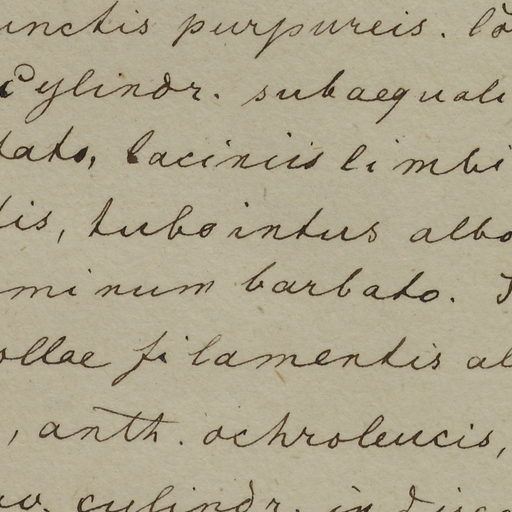 unctis purpureis. Co
Cylindr. subaequali
tato, laciniis limbi
tis, tubo intus albo
minum barbato.
ollae filamentis al
, anth. ochroleucis,
cylindr. in